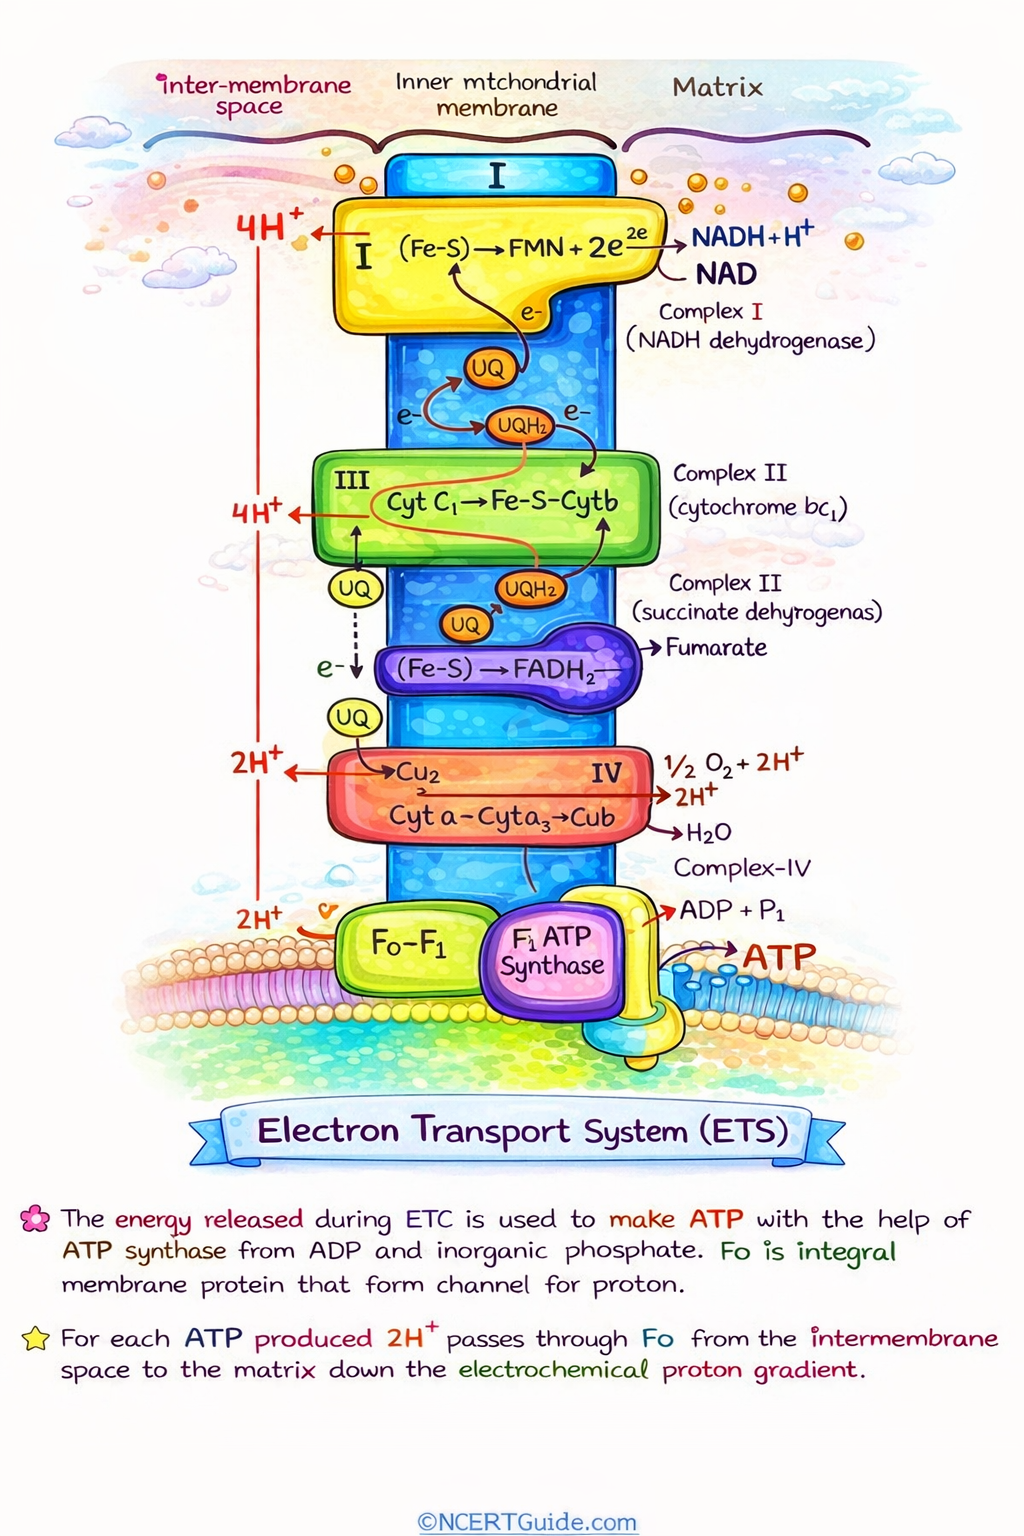 inter-membrane
space
Inner mtchondrial
membrane
Matrix
I
4H⁺
I
(Fe-S)→FMN + 2e
2e
NADH+H⁺
NAD
e-
Complex I
(NADH dehydrogenase)
UQ
e-
UQH₂
e-
III
Cyt C₁→Fe-S-Cytb
4H⁺
Complex II
(cytochrome bc₁)
UQ
UQH₂
UQ
Complex II
(succinate dehyrogenas)
e-
(Fe-S)→FADH₂
Fumarate
UQ
2H⁺
Cu₂
IV
Cyt a-Cyta₃→Cub
½ O₂+ 2H⁺
2H⁺
H₂O
Complex-IV
2H⁺
F₀-F₁
F₁ ATP
Synthase
ADP + P₁
ATP
Electron Transport System (ETS)
The energy released during ETC is used to make ATP with the help of
ATP synthase from ADP and inorganic phosphate. Fo is integral
membrane protein that form channel for proton.
For each ATP produced 2H⁺ passes through Fo from the intermembrane
space to the matrix down the electrochemical proton gradient.
©NCERTGuide.com